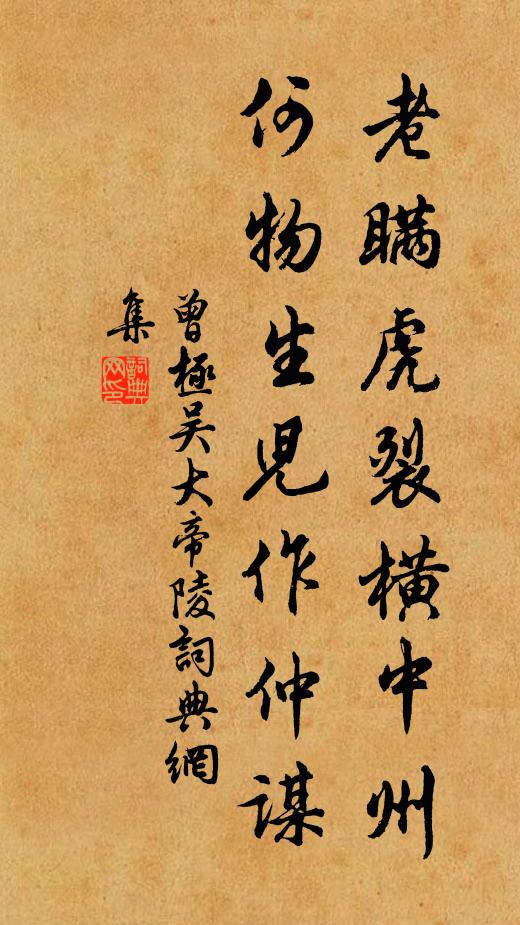 老瞞虎裂橫中州
何物生兒作仲謀
曾極吳大帝陵詞典網
集
詞典
网印